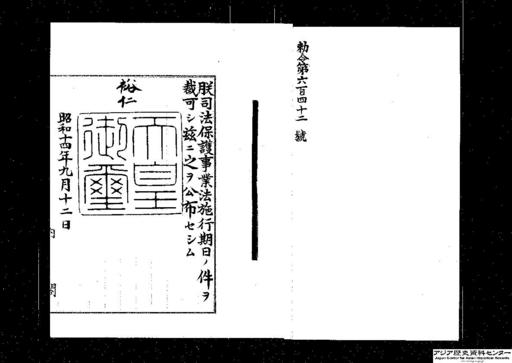 勅令第六百四十二號
朕司法保護事業法施行期日ノ件ヲ
裁可シ茲ニ之ヲ公布セシム
裕仁
天皇
御璽
昭和十四年九月十二日
内閣
アジア歴史資料センター
Japan Center for Asian Historical Records